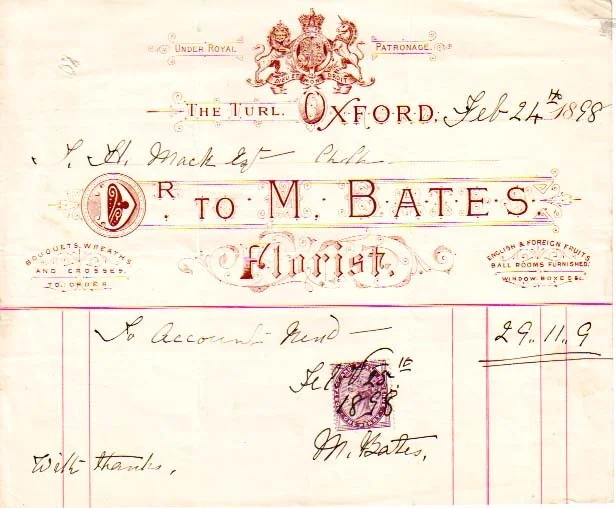 UNDER ROYAL PATRONAGE.
DIEU ET MON DROIT
THE TURL. OXFORD, Feb 24th 1898
Mack Esqr
DR. TO M. BATES.
Florist.
BOUQUETS, WREATHS
AND CROSSES
TO ORDER
ENGLISH & FOREIGN FRUITS,
BALL ROOMS FURNISHED,
WINDOW BOXES &c.
To Account 29.. 11.. 9
Feb 25th
1898
M. Bates,
With thanks,